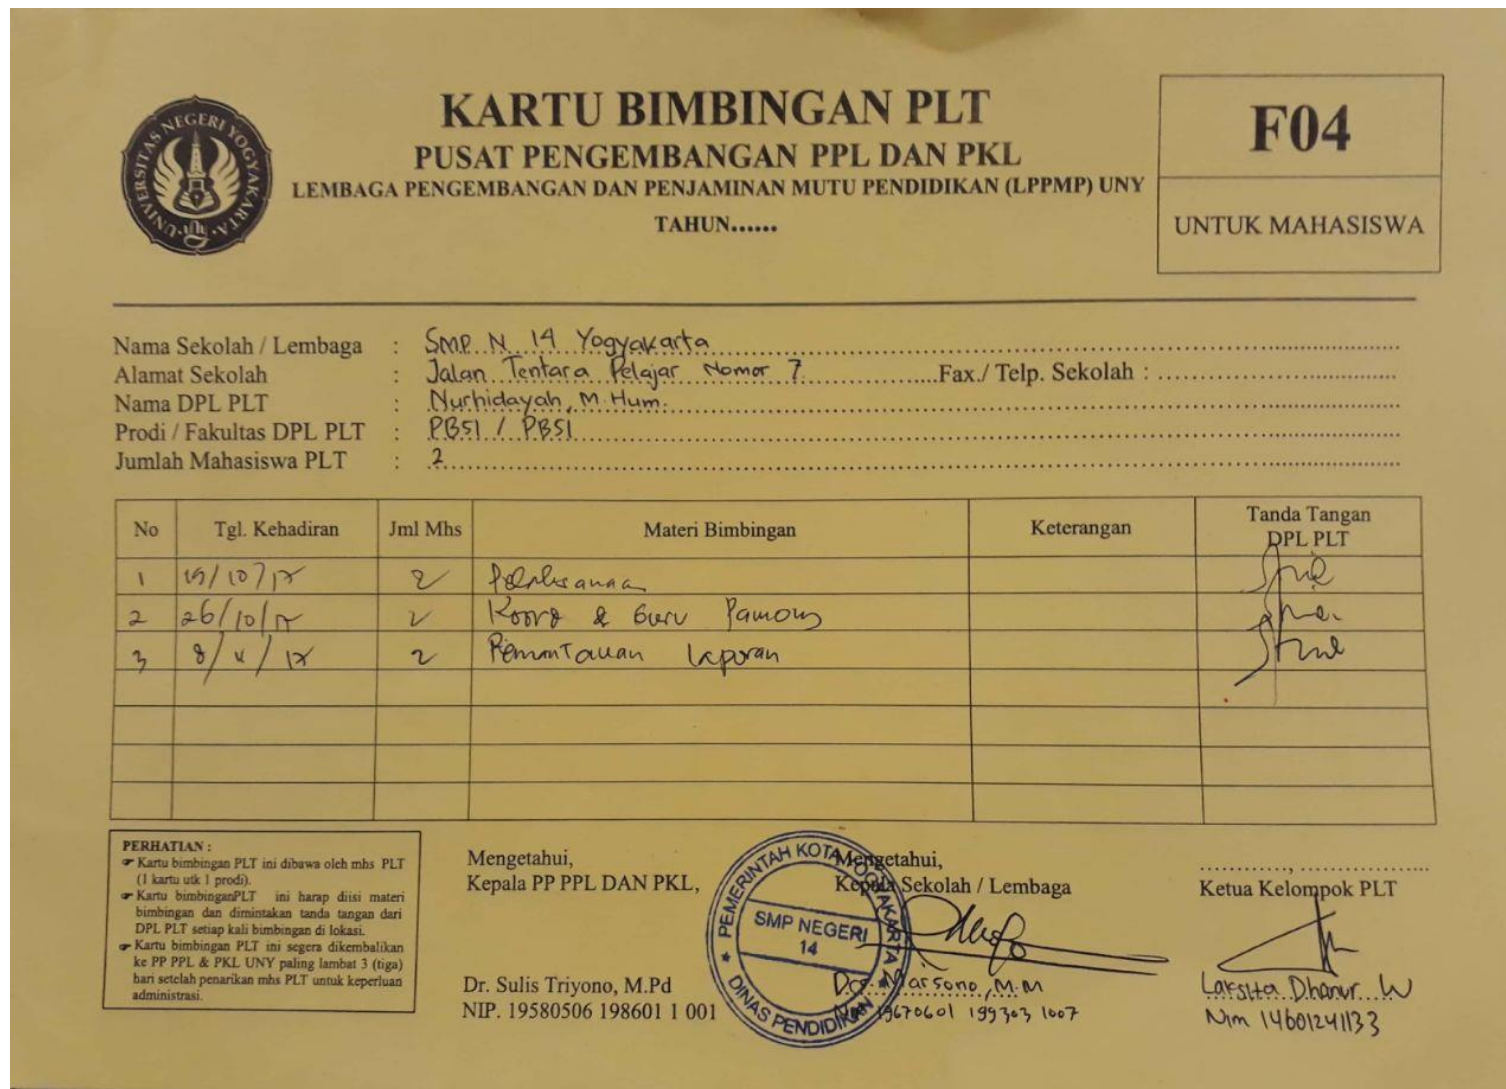 UNIVERSITAS NEGERI YOGYAKARTA
UNY
KARTU BIMBINGAN PLT
PUSAT PENGEMBANGAN PPL DAN PKL
LEMBAGA PENGEMBANGAN DAN PENJAMINAN MUTU PENDIDIKAN (LPPMP) UNY
TAHUN......
F04
UNTUK MAHASISWA
Nama Sekolah / Lembaga : SMP N 14 Yogyakarta
Alamat Sekolah : Jalan Tentara Pelajar Nomor 7 Fax./ Telp. Sekolah :
Nama DPL PLT : Nurhidayah, M.Hum.
Prodi / Fakultas DPL PLT : PBSI / PBSI
Jumlah Mahasiswa PLT : 2
No Tgl. Kehadiran Jml Mhs Materi Bimbingan Keterangan Tanda Tangan DPL PLT
1 19/10/17 2 Pelaksanaan
2 26/10/17 2 Koord & Guru Pamong
3 8/ /17 2 Pemantauan laporan
PERHATIAN :
☞ Kartu bimbingan PLT ini dibawa oleh mhs PLT
(1 kartu utk 1 prodi).
☞ Kartu bimbinganPLT ini harap diisi materi
bimbingan dan dimintakan tanda tangan dari
DPL PLT setiap kali bimbingan di lokasi.
☞ Kartu bimbingan PLT ini segera dikembalikan
ke PP PPL & PKL UNY paling lambat 3 (tiga)
hari setelah penarikan mhs PLT untuk keperluan
administrasi.
Mengetahui,
Kepala PP PPL DAN PKL,
Dr. Sulis Triyono, M.Pd
NIP. 19580506 198601 1 001
PEMERINTAH KOTA YOGYAKARTA
SMP NEGERI
14
DINAS PENDIDIKAN
Mengetahui,
Kepala Sekolah / Lembaga
M.M
19670601 199303 1007
............, ..................
Ketua Kelompok PLT
Laksita Dhanur W
Nim 14601241133